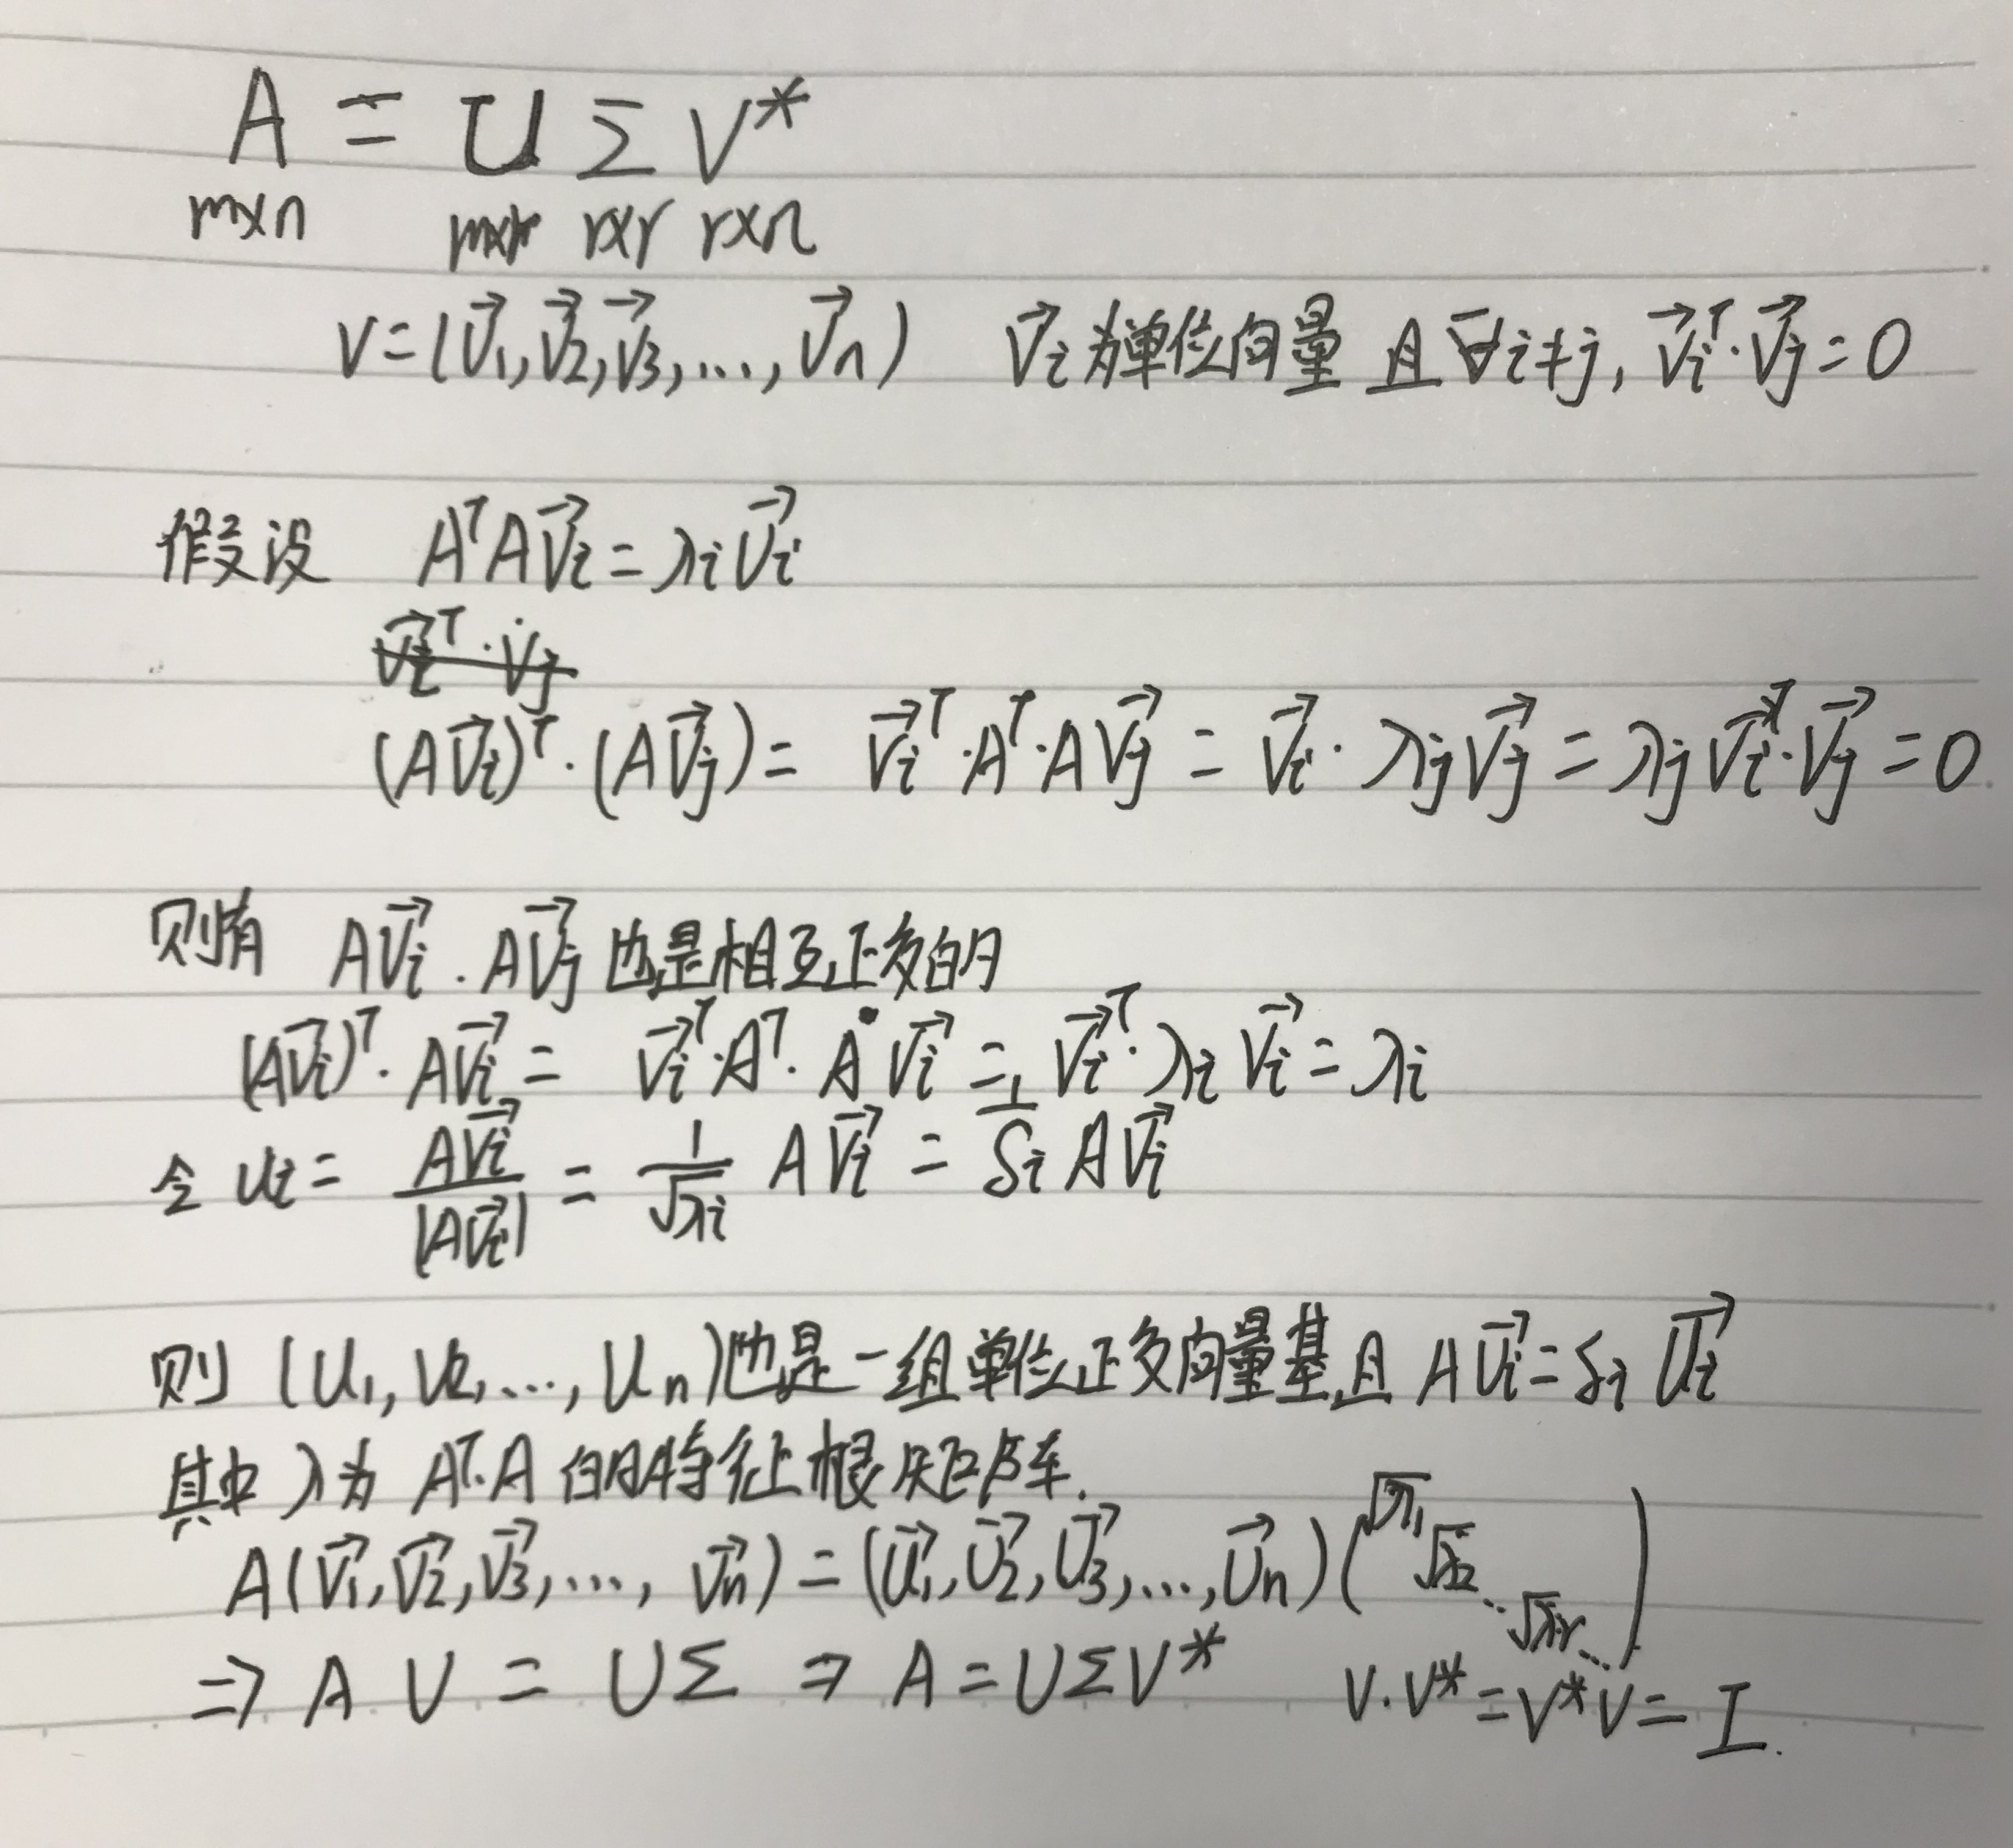 A = U Σ V*
m×n m×r r×r r×n
V=(v⃗1,v⃗2,v⃗3,...,v⃗n) v⃗i为单位向量 且∀i≠j, v⃗iᵀ·v⃗j=0
假设 AᵀAv⃗i=λiv⃗i
v⃗iᵀ·vj
(Av⃗i)ᵀ·(Av⃗j)= v⃗iᵀ·Aᵀ·Av⃗j = v⃗i·λjv⃗j = λjv⃗iᵀ·v⃗j=0
则有 Av⃗i.Av⃗j也是相互正交的
(Av⃗i)ᵀ·Av⃗i = v⃗iᵀ·Aᵀ·A v⃗i = v⃗iᵀ·λi v⃗i = λi
令 ui = Av⃗i/|Av⃗i| = 1/√λi Av⃗i = 1/δi Av⃗i
则 (U1,U2,...,Un)也是一组单位正交向量基,且 Av⃗i=δi U⃗i
其中 λ为 Aᵀ·A 的特征根矩阵.
A(v⃗1,v⃗2,v⃗3,..., v⃗n)=(U⃗1,U⃗2,U⃗3,...,U⃗n)(√λ1 √λ2 ... √λr ...)
⇒ A V = UΣ ⇒ A=UΣV* V·V*=V*V=I.